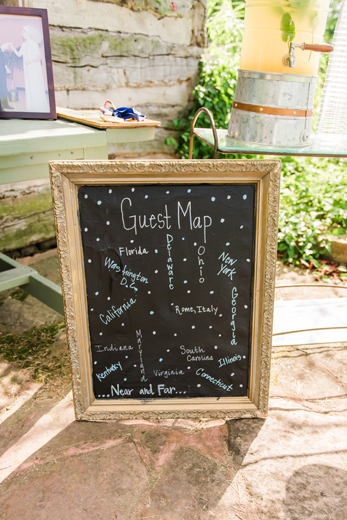 Guest Map
Florida
Delaware
Ohio
New York
Washington D.C.
California
Georgia
Rome, Italy
Maryland
Indiana
South Carolina
Illinois
Kentucky
Virginia
Connecticut
Near and Far...